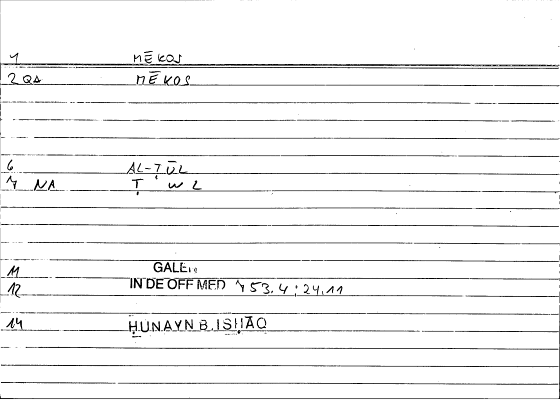 1 MĒKOS
2 QA MĒKOS
6 AL-ṬŪL
7 NA Ṭ W L
11 GALEN
12 IN DE OFF MED 753.4 ; 24.11
14 ḤUNAYN B. ISḤĀQ